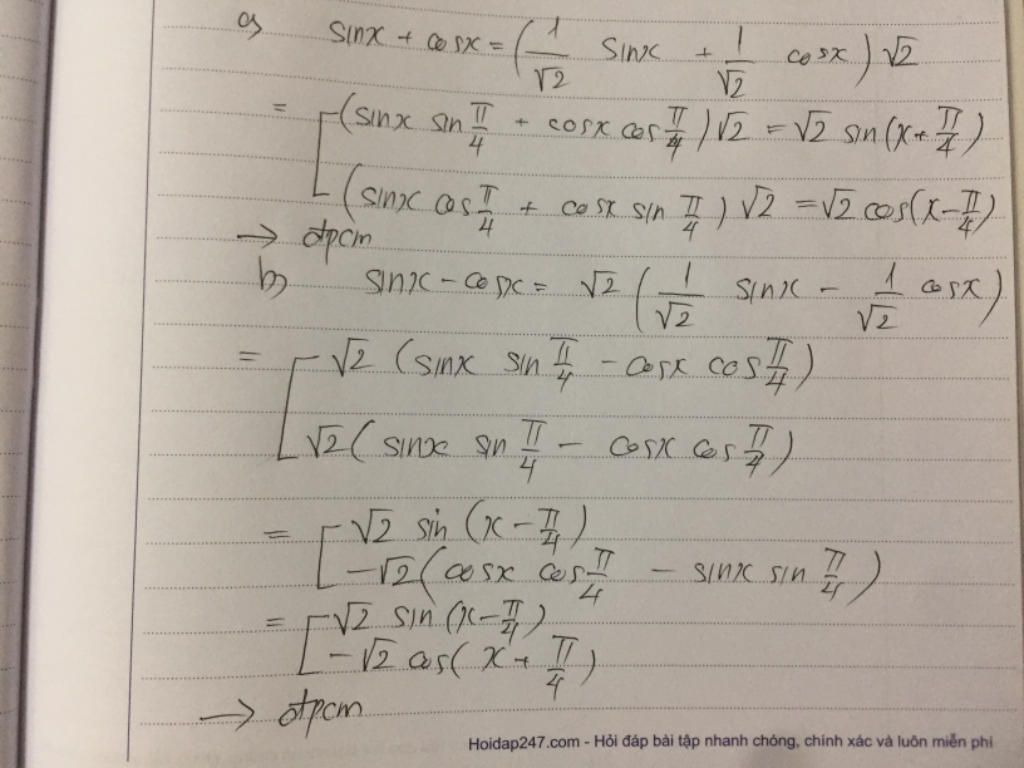 a) sinx + cosx = (1/√2 sinx + 1/√2 cosx)√2
= [ (sinx sin π/4 + cosx cos π/4)√2 = √2 sin(x + π/4)
(sinx cos π/4 + cosx sin π/4)√2 = √2 cos(x - π/4)
→ đpcm
b) sinx - cosx = √2 (1/√2 sinx - 1/√2 cosx)
= [ √2 (sinx sin π/4 - cosx cos π/4)
√2 (sinx sin π/4 - cosx cos π/4)
= [ √2 sin (x - π/4)
-√2 (cosx cos π/4 - sinx sin π/4)
= [ √2 sin (x - π/4)
-√2 cos( x + π/4)
→ đpcm
Hoidap247.com - Hỏi đáp bài tập nhanh chóng, chính xác và luôn miễn phí